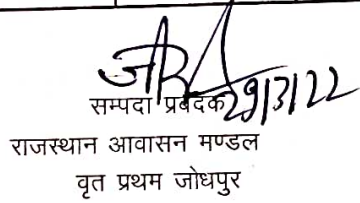 29/3/22
सम्पदा प्रबंदक
राजस्थान आवासन मण्डल
वृत प्रथम जोधपुर